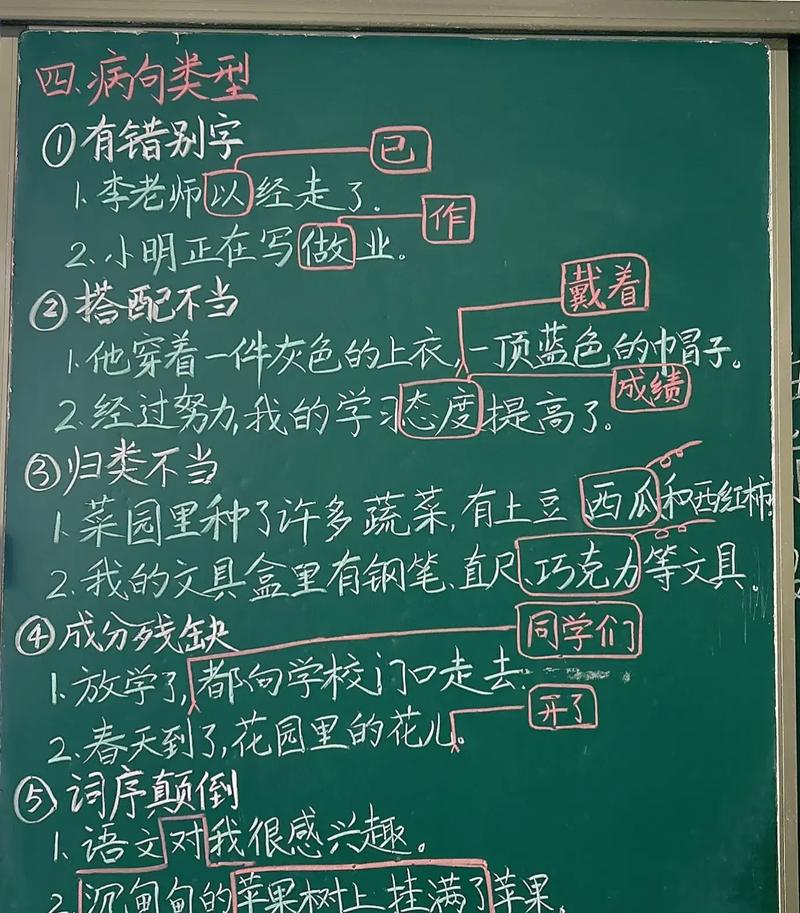 四.病句类型
①有错别字
已
1.李老师以经走了.
作
2.小明正在写做业。
②搭配不当
戴着
1.他穿着一件灰色的上衣,一顶蓝色的巾冒子。
成绩
2.经过努力,我的学习态度提高了。
③归类不当
1.菜园里种了许多蔬菜,有土豆 西瓜和西红柿
2.我的文具盒里有钢笔、直尺、巧克力等文具。
④成分残缺
同学们
1.放学了,都向学校门口走去.
开了
2.春天到了,花园里的花儿。
⑤词序颠倒
1.语文对我很感兴趣。
2.沉甸甸的苹果树上挂满了苹果.